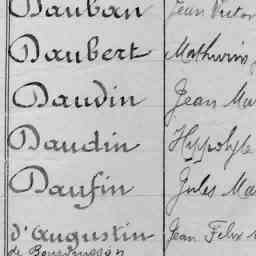 Dauban Jean Victor
Daubert Mathurin
Daudin Jean Ma
Daudin Hyppolyte
Daufin Jules Ma
d'Augustin Jean Felix
de Bourgusson